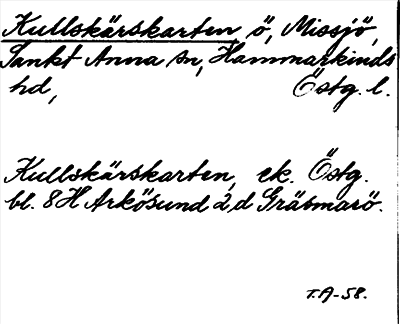 Kullskärskarten ö, Missjö,
Sankt Anna sn, Hammarkinds
hd, Östg. l.
Kullskärskarten, ek. Östg.
bl. 8H Arkösund 2,d Gräsmarö.
T.A-58.